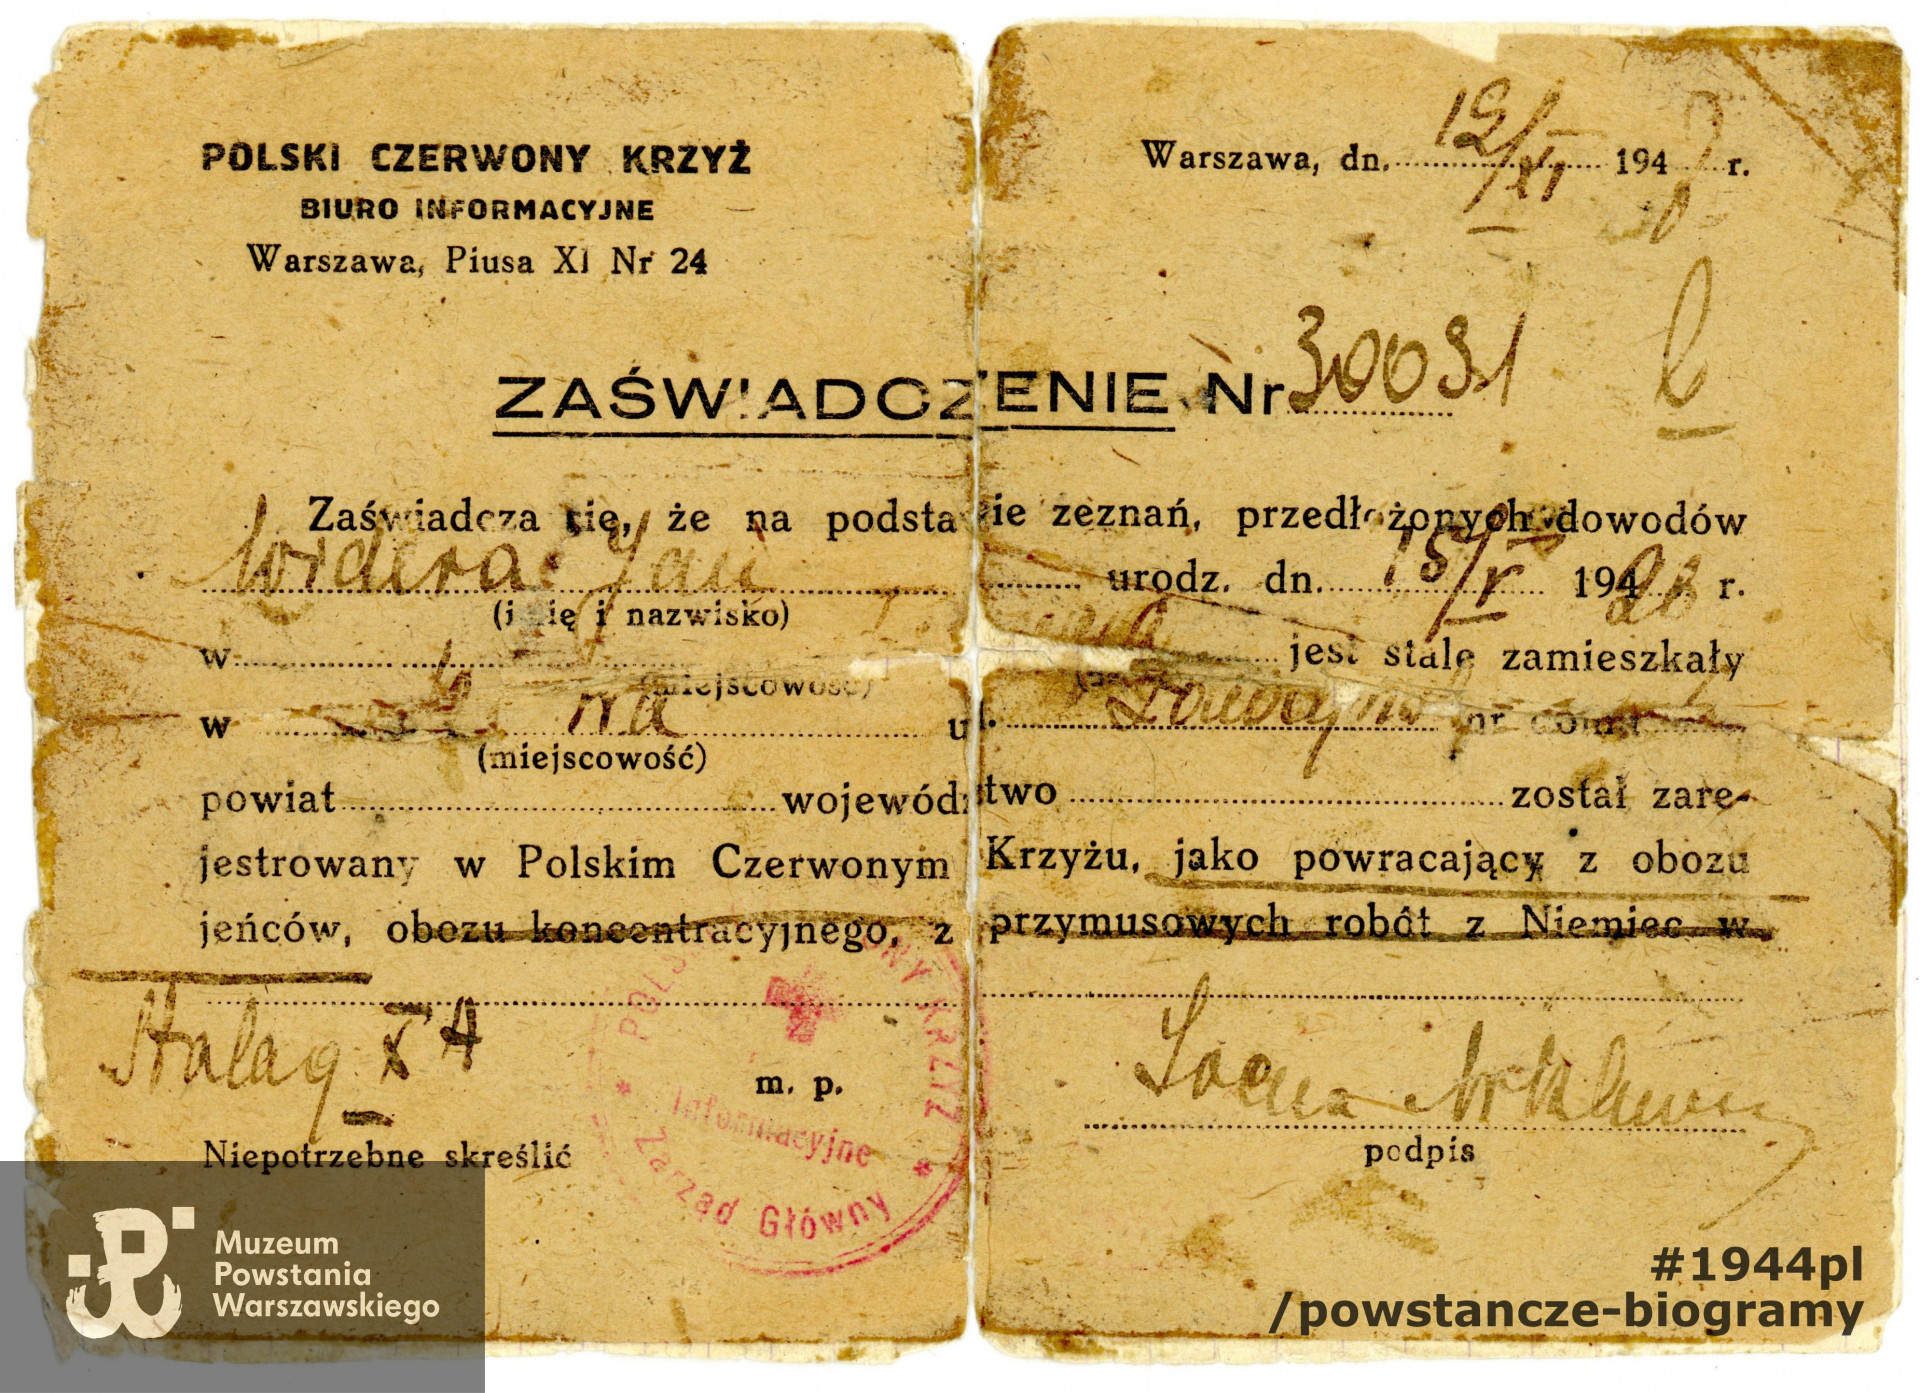 POLSKI CZERWONY KRZYŻ
BIURO INFORMACYJNE
Warszawa, Piusa XI Nr 24
Warszawa, dn. 12/XI 194 r.
ZAŚWIADCZENIE Nr 30031
Zaświadcza się, że na podstawie zeznań, przedłożonych dowodów
Widera Jan urodz. dn. 15/V 1926 r.
(imię i nazwisko)
w jest stale zamieszkały
(miejscowość)
w ul. nr domu
(miejscowość)
powiat województwo został zare-
jestrowany w Polskim Czerwonym Krzyżu, jako powracający z obozu
jeńców, obozu koncentracyjnego, z przymusowych robót z Niemiec w
Stalag X A
m. p.
podpis
Niepotrzebne skreślić
POLSKI CZERWONY KRZYŻ
Informacyjne
* Zarząd Główny *
Muzeum
Powstania
Warszawskiego
#1944pl
/powstancze-biogramy